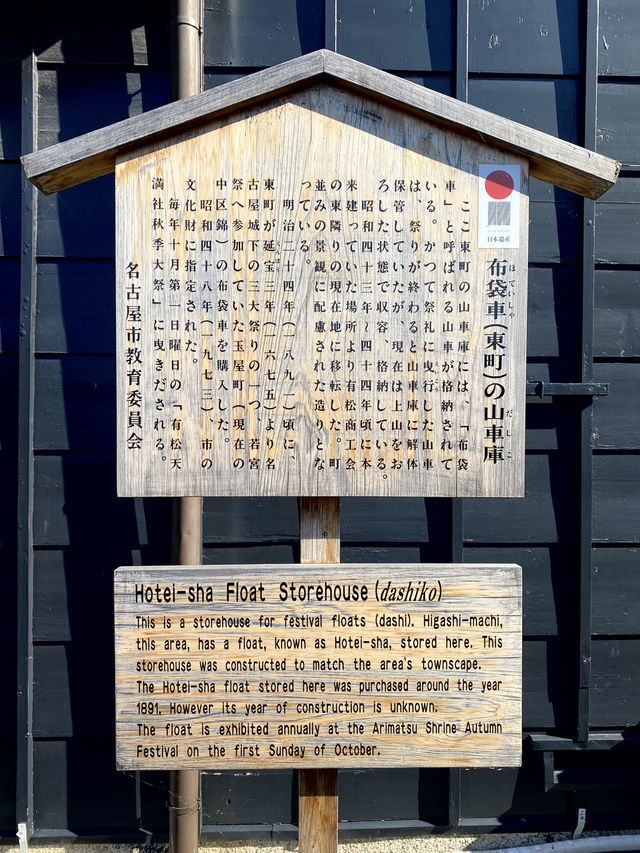 日本遺産
布袋車(東町)の山車庫
ほていしゃ
だしこ
ここ東町の山車庫には、「布袋
車」と呼ばれる山車が格納されて
いる。かつて祭礼に曳行した山車
は、祭りが終わると山車庫に解体
保管していたが、現在は上山をお
ろした状態で収容、格納している。
昭和四十三年~四十四年頃に本
来建っていた場所より有松商工会
の東隣りの現在地に移転した。町
並みの景観に配慮された造りとな
っている。
明治二十四年(一八九一)頃に、
東町が延宝三年(一六七五)より名
古屋城下の三大祭りの一つ、若宮
祭へ参加していた玉屋町(現在の
中区錦)の布袋車を購入した。
昭和四十八年(一九七三)、市の
文化財に指定された。
毎年十月第一日曜日の「有松天
満社秋季大祭」に曳きだされる。
名古屋市教育委員会
Hotei-sha Float Storehouse (dashiko)
This is a storehouse for festival floats (dashi). Higashi-machi,
this area, has a float, known as Hotei-sha, stored here. This
storehouse was constructed to match the area's townscape.
The Hotei-sha float stored here was purchased around the year
1891. However its year of construction is unknown.
The float is exhibited annually at the Arimatsu Shrine Autumn
Festival on the first Sunday of October.